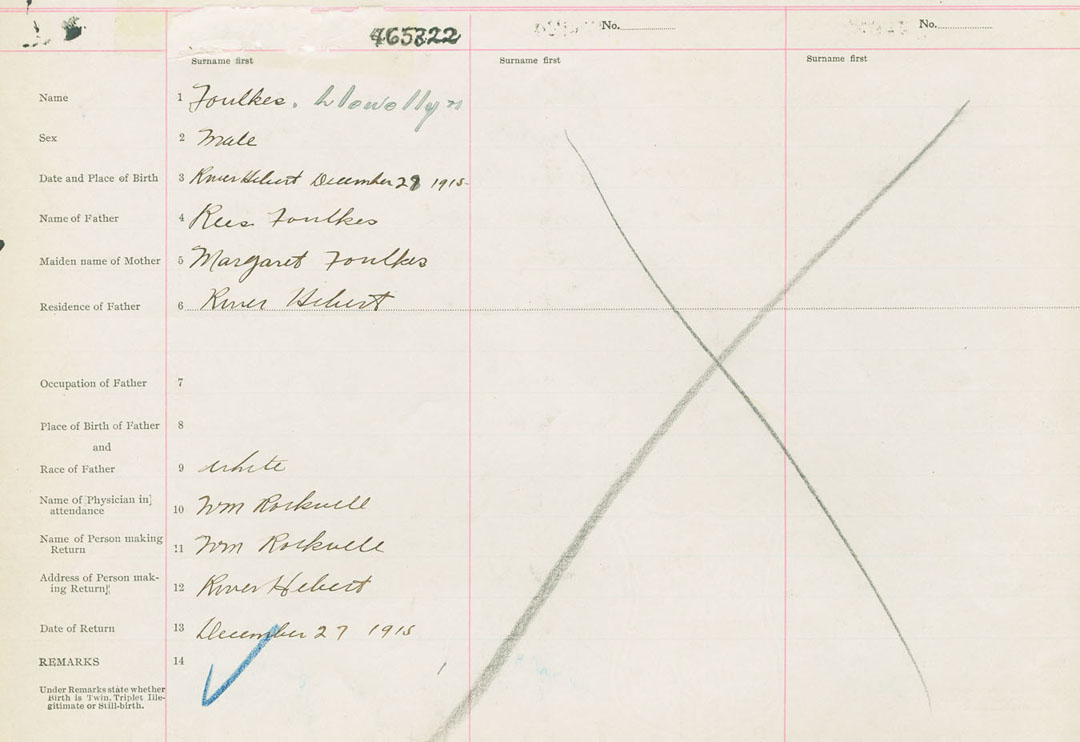 465322
No.
No.
Surname first
Surname first
Surname first
Name 1 Foulkes. Llewellyn
Sex 2 Male
Date and Place of Birth 3 River Hebert December 27 1915
Name of Father 4 Rees Foulkes
Maiden name of Mother 5 Margaret Foulkes
Residence of Father 6 River Hebert
Occupation of Father 7
Place of Birth of Father 8
and
Race of Father 9 white
Name of [Physician in]
attendance 10 Wm Rockwell
Name of Person making
Return 11 Wm Rockwell
Address of Person mak-
ing Return] 12 River Hebert
Date of Return 13 December 27 1915
REMARKS 14
Under Remarks state whether
Birth is Twin, Triplet Ille-
gitimate or Still-birth.